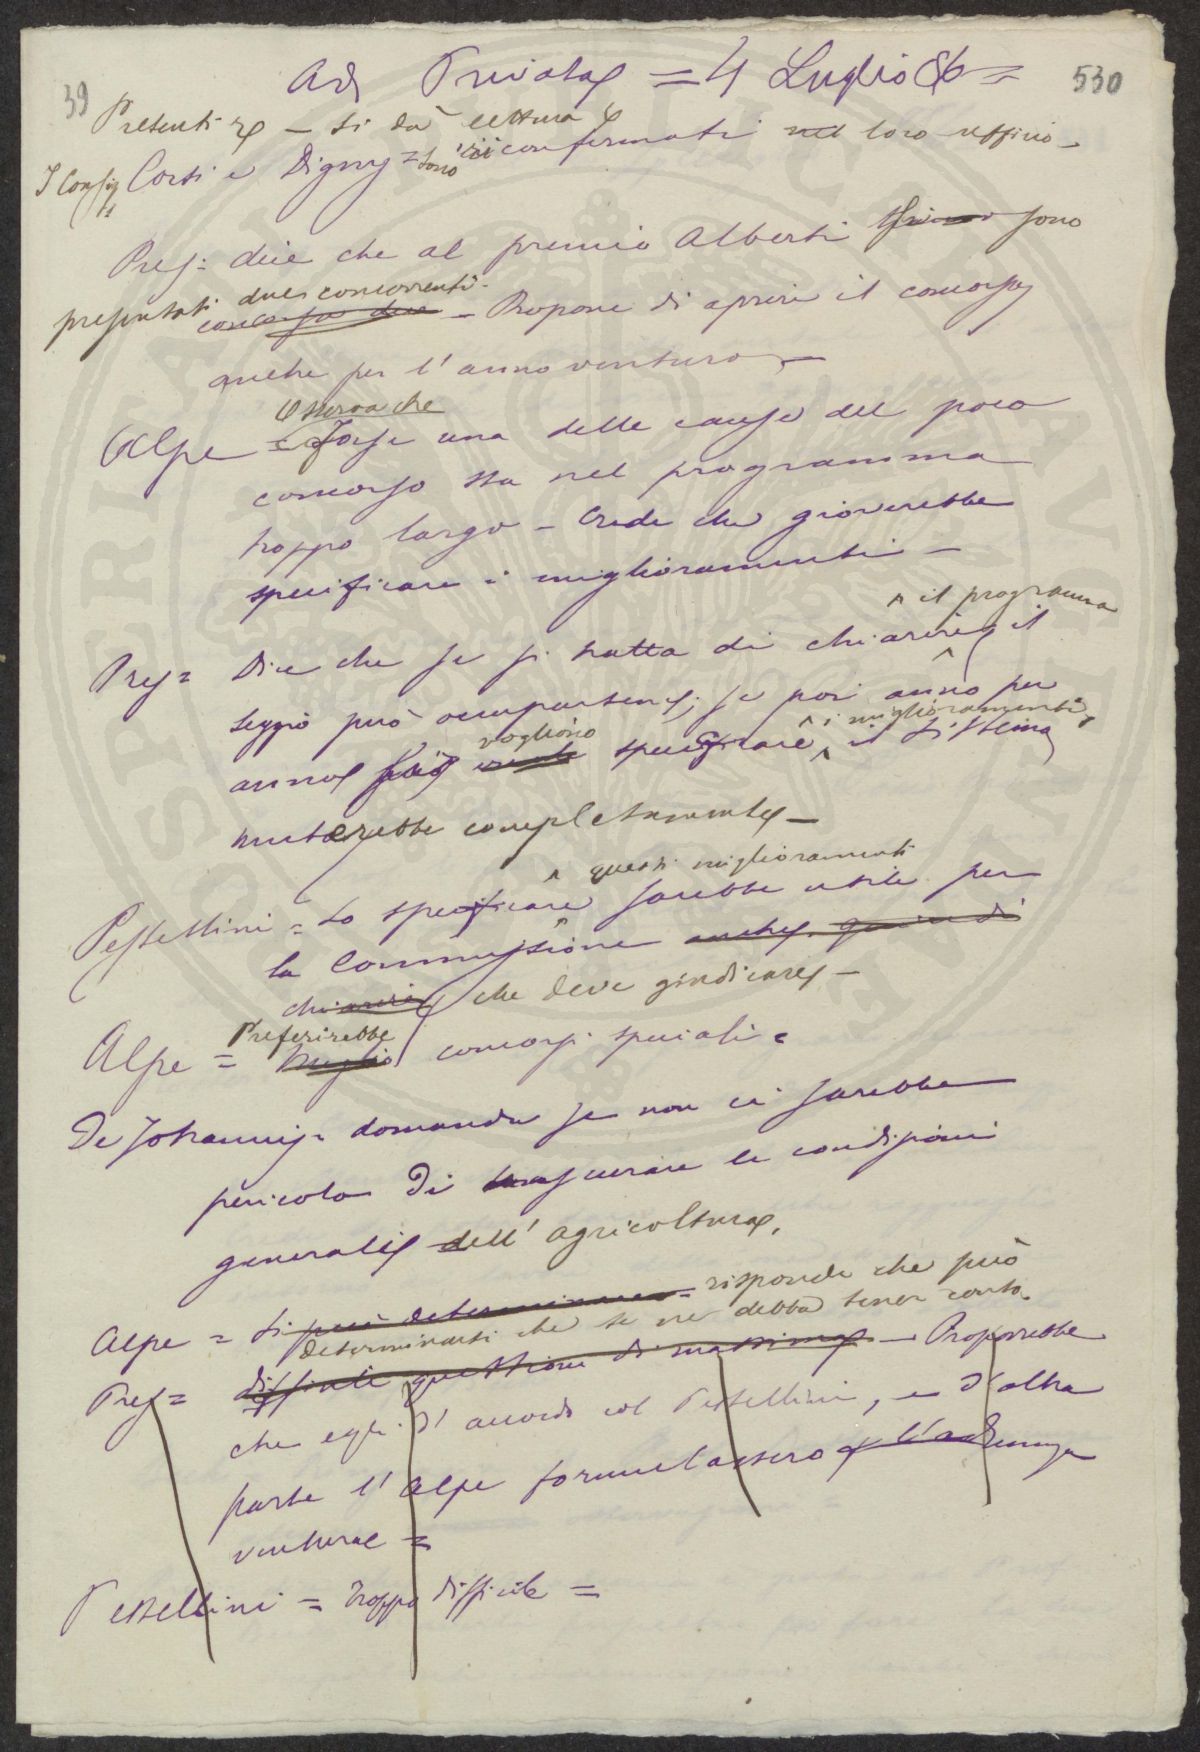 39
Ad. Privata = 4 Luglio 86 =
530
Presenti — Si dà lettura
I Consig Corsi e Digny = sono riconfermati nel loro ufficio —
Pres = dice che al premio Alberti sono
presentati due concorrenti —
concorso due — Propone di aprire il concorso
anche per l'anno venturo —
Osserva che
Alpe = Forse una delle cause del poco
concorso sta nel programma
troppo largo — Crede che gioverebbe
specificare i miglioramenti —
^ il programma
Pres = Dice che se si tratta di chiarire il
seggio può occuparsene; se poi anno per
vogliono ^ i miglioramenti,
anno specificare il sistema
muterebbe completamente —
^ questi miglioramenti
Pestellini = Lo specificare sarebbe utile per
la Commissione anche quindi
chiarire che deve giudicare —
Preferirebbe
Alpe = meglio concorsi speciali =
De Johannis = domanda se non ci sarebbe
pericolo di trascurare le condizioni
generali dell'agricoltura.
Alpe = Si può determinare = risponde che può
determinarsi che se ne debba tener conto.
Pres = difficile questione di massima — Proporrebbe
che egli d'accordo col Pestellini, e d'altra
parte l'Alpe formulassero l'adunza
ventura =
Pestellini = troppo difficile =